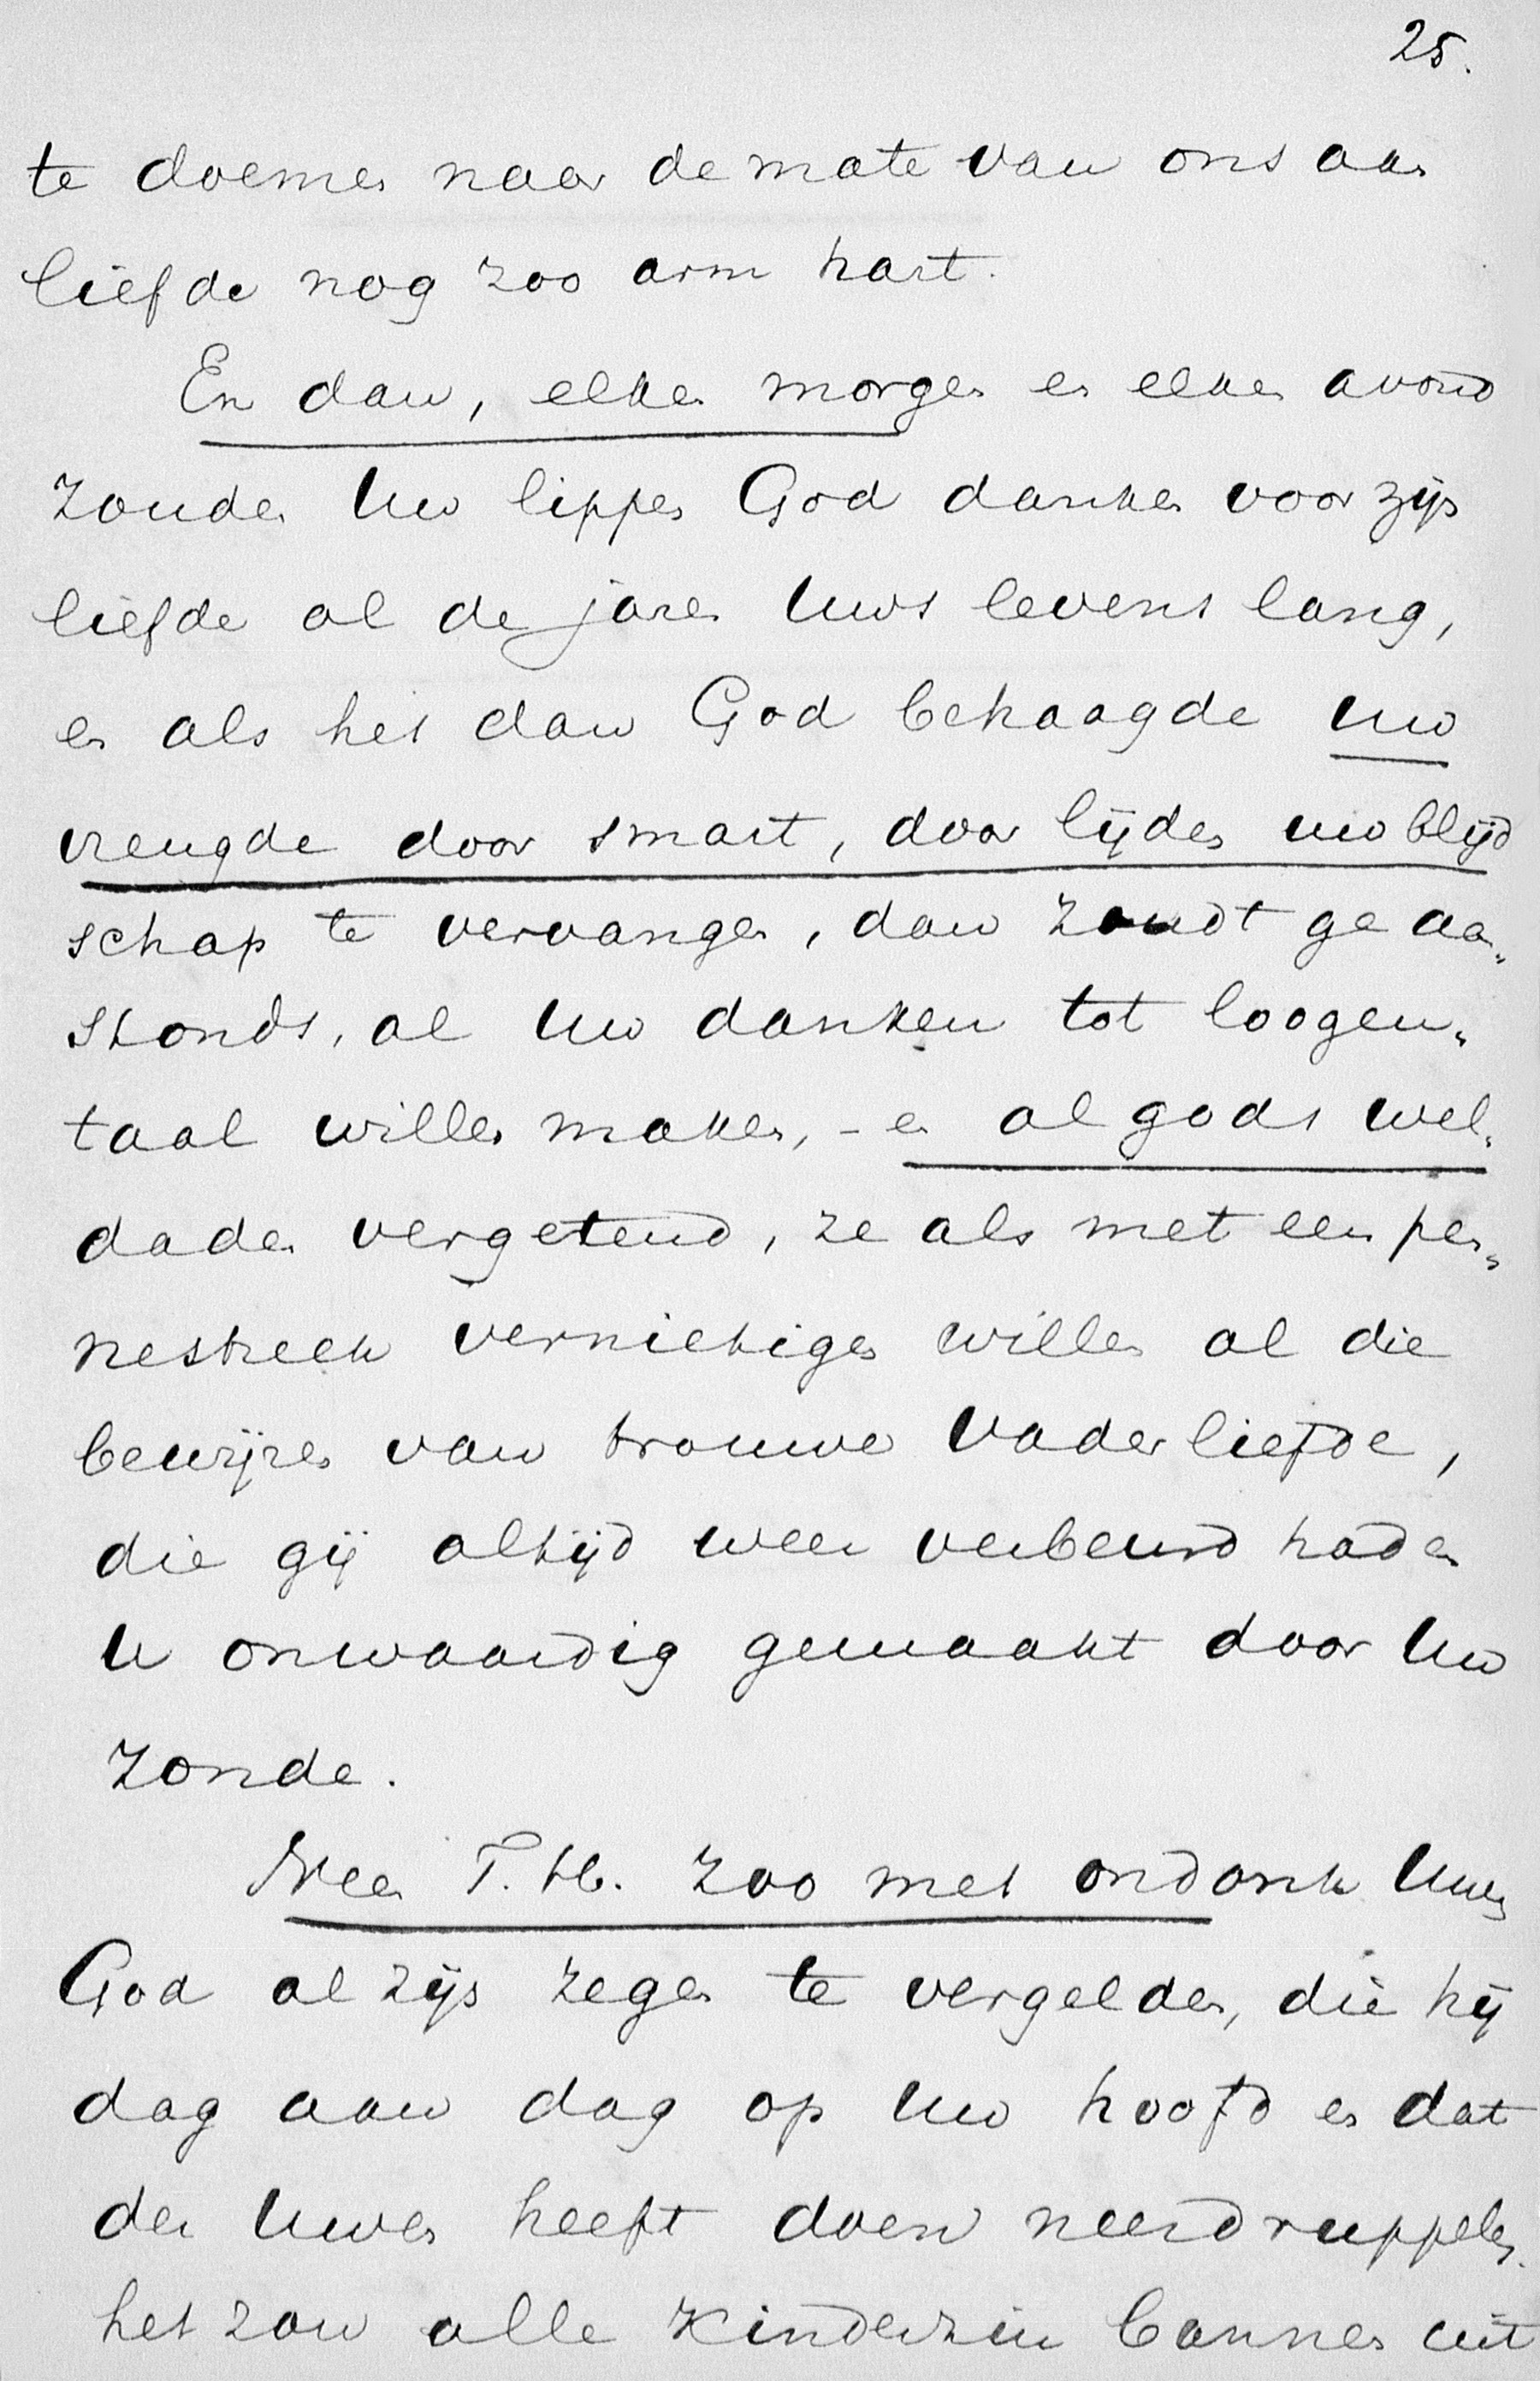 25.
te doemen naar de mate van ons aan
liefde nog zoo arm hart.
En dan, elken morgen en elken avond
zouden Uw lippen God danken voor zijn
liefde al de jaren Uws levens lang,
en als het dan God behaagde uw
vreugde door smart, door lijden uw blijd
schap te vervangen, dan zoudt ge aan„
stonds, al Uw danken tot loogen„
taal willen maken, - en al gods wel„
daden vergetend, ze als met een pen„
nestreek vernietigen willen al die
bewijzen van trouwe Vaderliefde,
die gij altijd weer verbeurd hadt en
U onwaardig gemaakt door Uw
zonde.
Neen T. H. zoo met ondank Uwen
God al zijn zegen te vergelden, die hij
dag aan dag op Uw hoofd en dat
der Uwen heeft doen neerdruppelen.
het zou alle kinderzin bannen uit